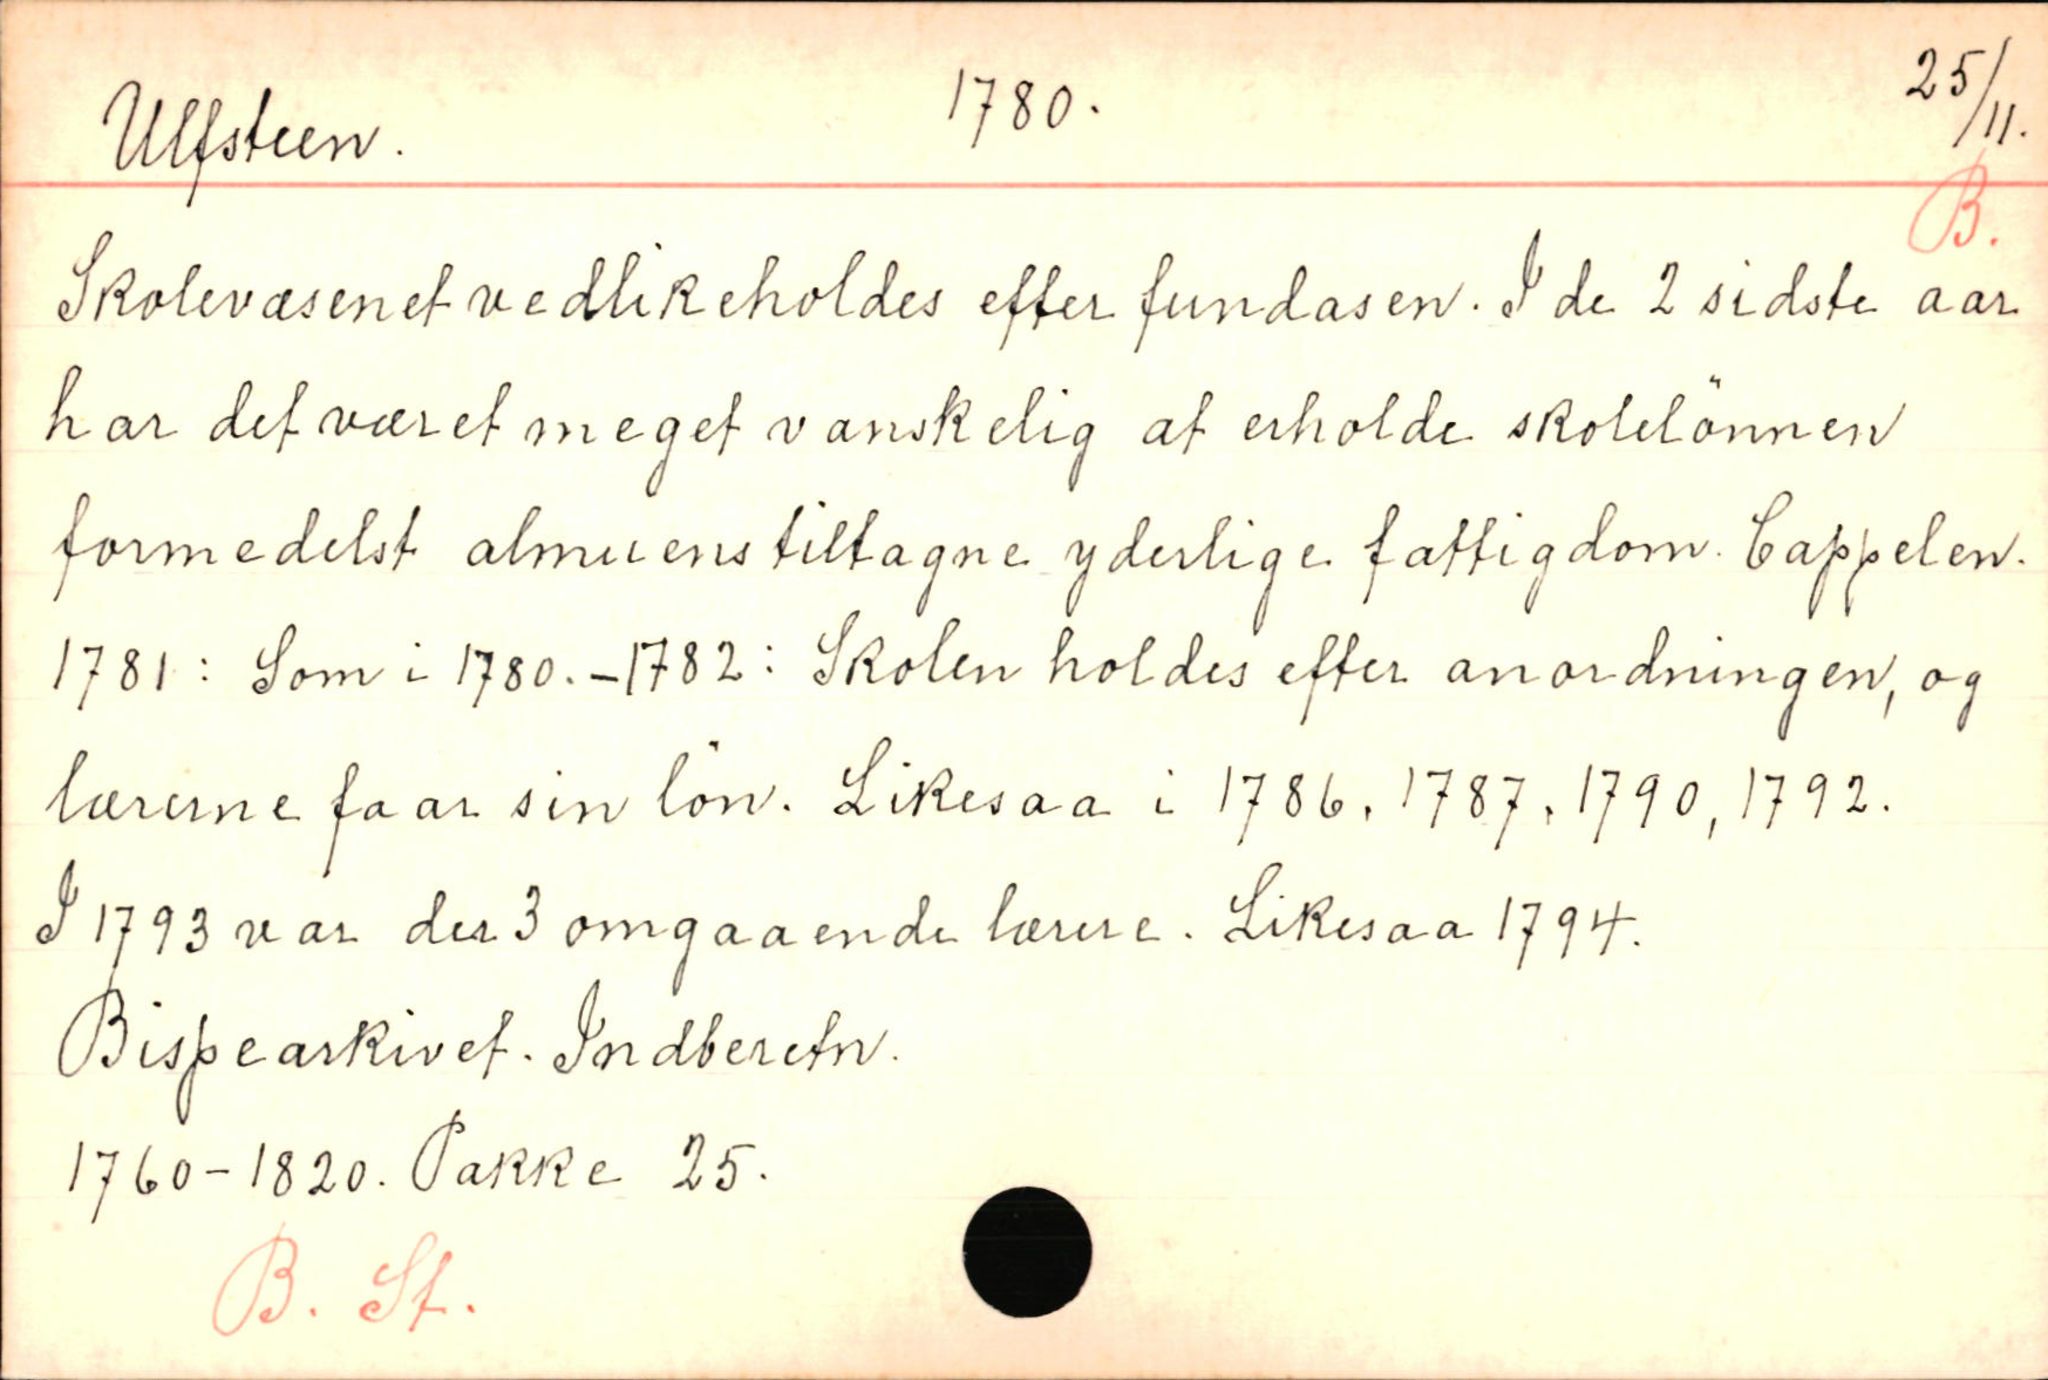 Ulfsteen. 1780. 25/11.
B.
Skolevæsenet vedlikeholdes efter fundasen. I de 2 sidste aar
har det været meget vanskelig at erholde skolelönnen
formedelst almuens tiltagne yderlige fattigdom. Cappelen.
1781: Som i 1780. - 1782: Skolen holdes efter anordningen, og
lærerne faar sin lön. Likesaa i 1786, 1787, 1790, 1792.
I 1793 var der 3 omgaaende lærere. Likesaa 1794.
Bispearkivet. Indberetn.
1760-1820. Pakke 25.
B. St.